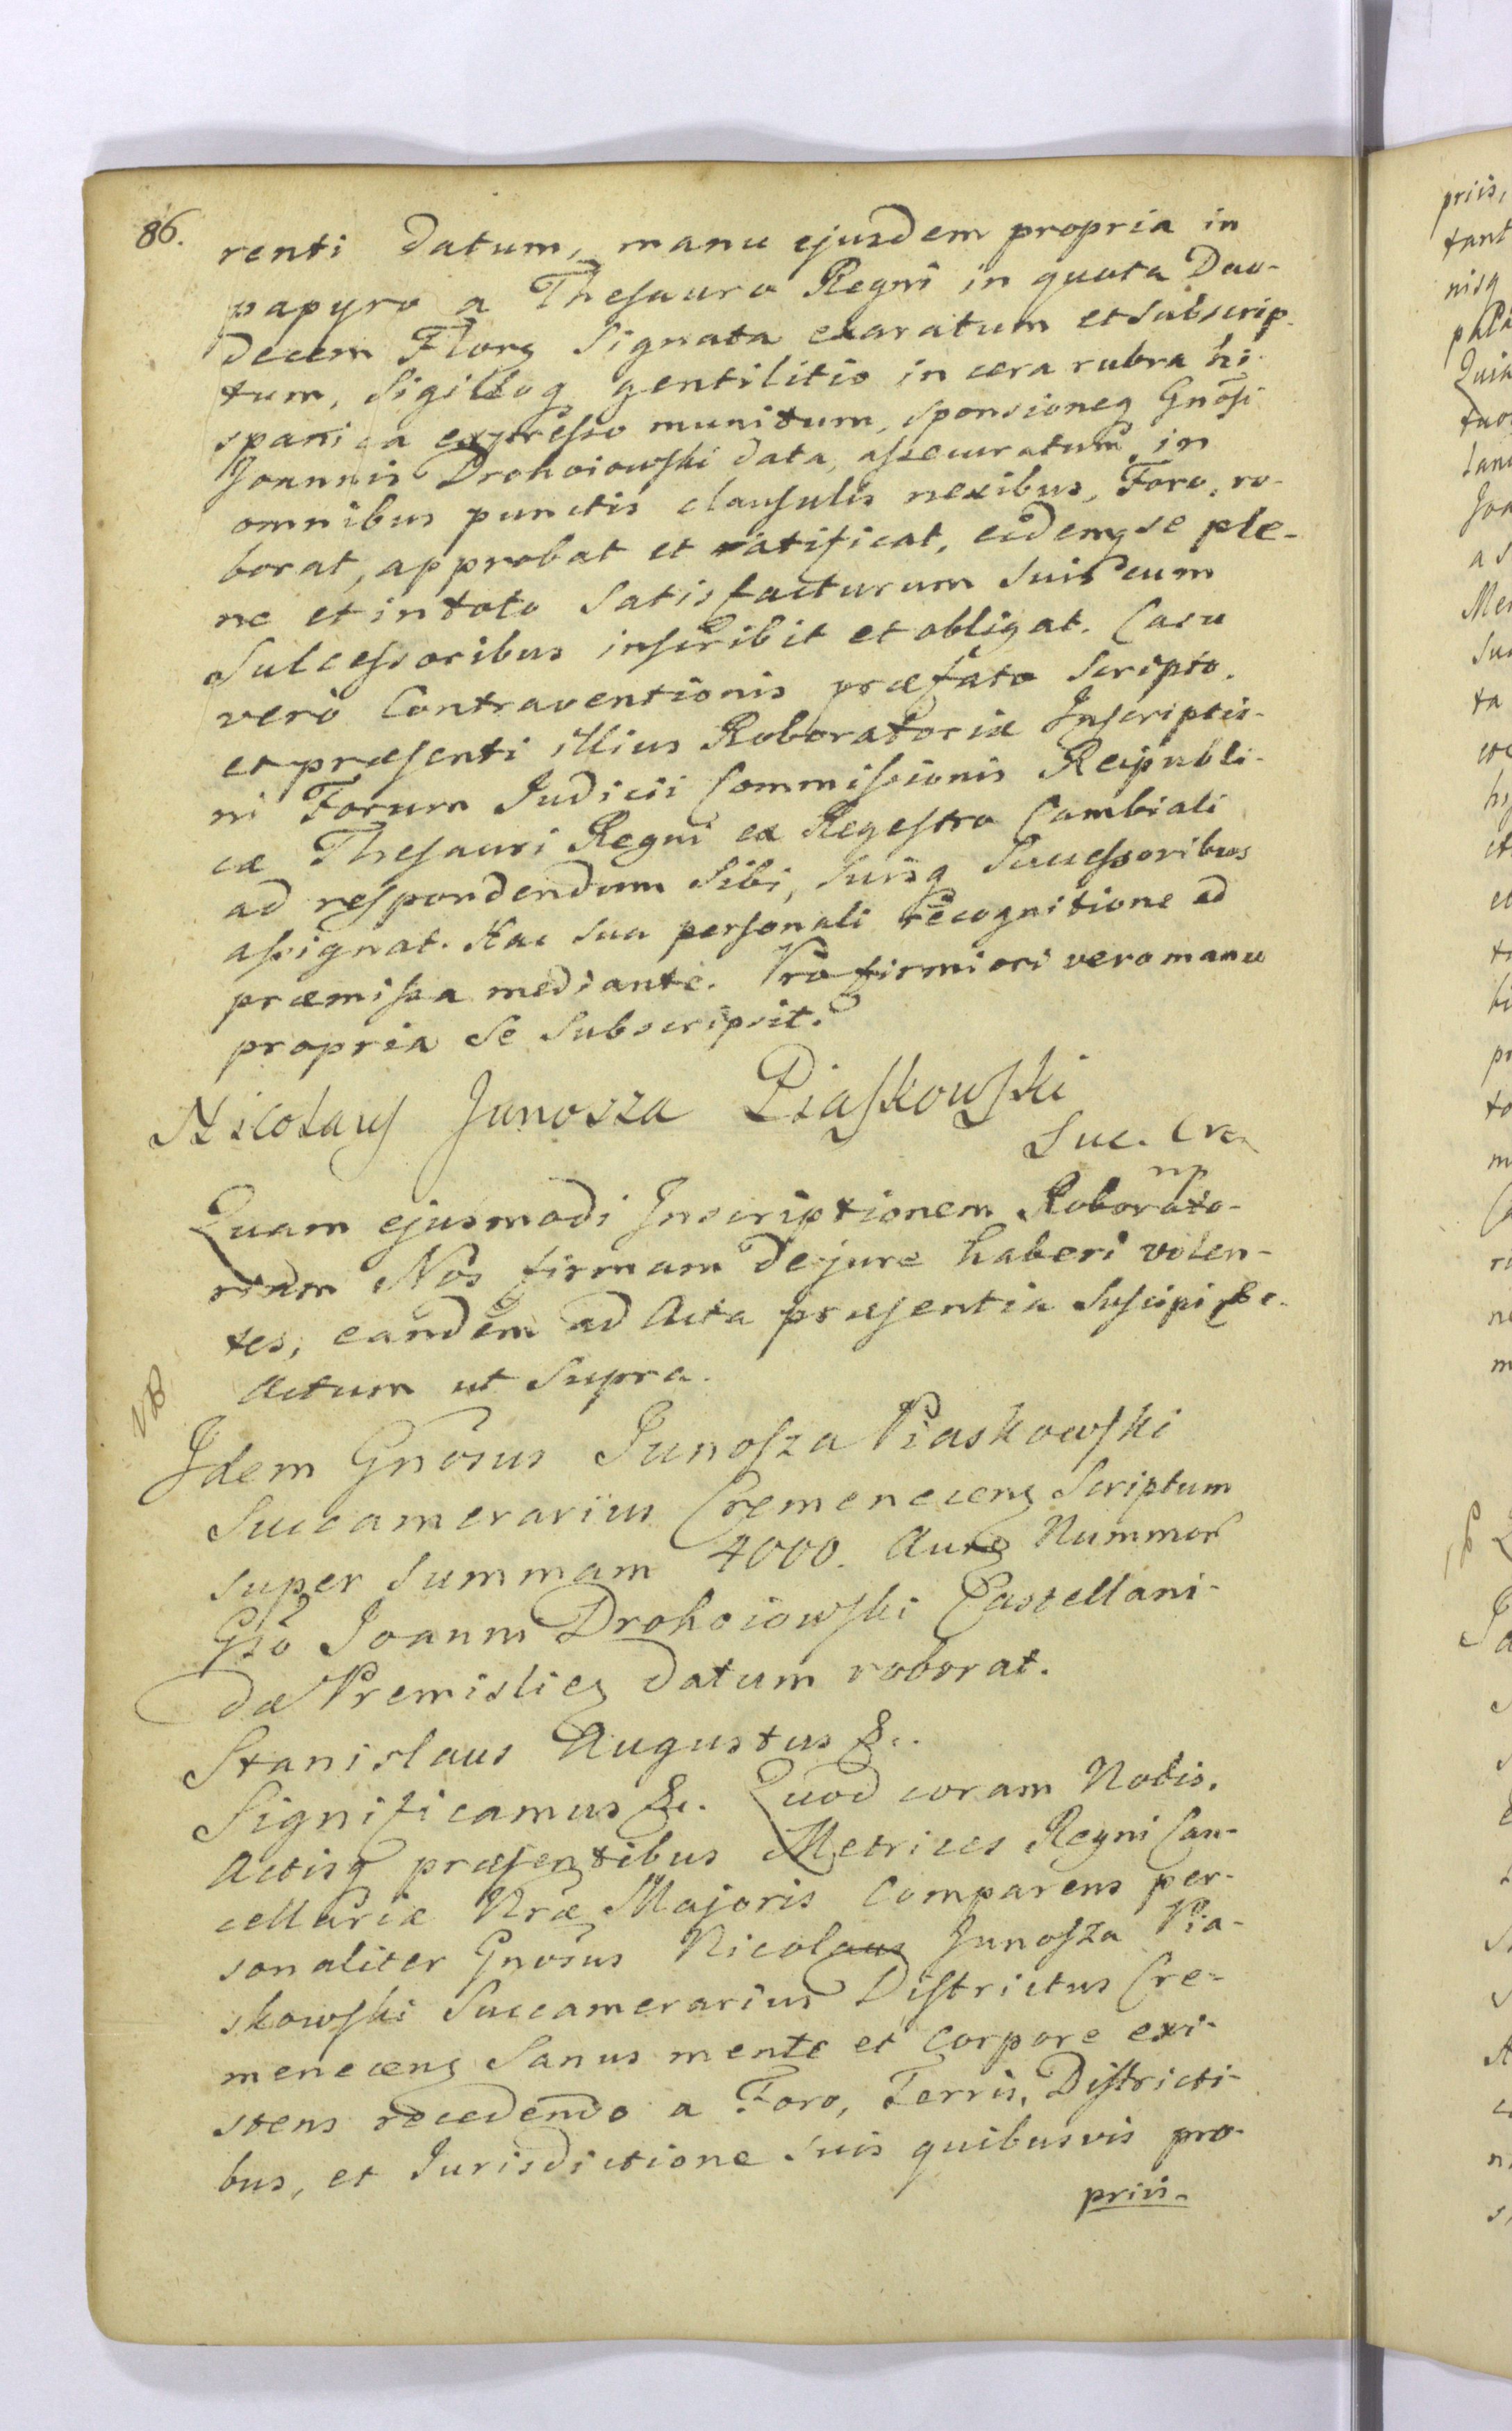 86.
renti datum, manu ejusdem propria in
papyro a Thesauro Regni in quota Duo-
decem Florg Signata exaratum et subscrip-
tum, Sigilloq gentilitio in cera rubra hi-
spanica expresso munitum, sponsioneq Gnosi
Joannis Drohoiowski data, assecuratum in
omnibus punctis clausulis nexibus, Foro, ro-
borat, approbat et ratificat, eidemq se ple-
ne et in toto Satisfacturum Suis cum
Sulcessoribus inscribit et obligat. Casu
verò Contraventionis præfato Scripto,
et præsenti illius Roboratoriæ Inscriptio-
ni Forum Judicii Commissionis Reipubli-
cæ Thesauri Regni ex Regestro Cambiali
ad respondendum Sibi, Suisq Successoribus
assignat. Hac sua personali recognitione ad
præmissa mediante. Pro firmiori vero manu
propria Se Subscripsit.
Nicolaus Junosza Piaskowski
Suc. Cre
mp
Quam ejusmodi Inscriptionem Roborato-
riam Nos firmam de jure haberi volen-
tes, eandem ad Acta præsentia Suscipi
Actum ut Supra.
NB
Idem Gnosus Junosza Piaskowski
Succamerarius Cremeneceng Scriptum
super Summam 4000. Aurg Nummor
Gso Joanni Drohoiowski Castellani-
dæ Premislieg datum roborat.
Stanislaus Augustus &.
Significamus &. Quod coram Nobis,
Actisq præsentibus Metrices Regni Can-
cellariæ Nræ Majoris Comparens per-
sonaliter Gnosus Nicolaus Junosza Pia-
skowski Succamerarius Districtus Cre-
meneceng Sanus mente et Corpore exi-
stens recedendo a Foro, Terris, Districti-
bus, et Jurisdictione Suis quibusvis pro-
priis-